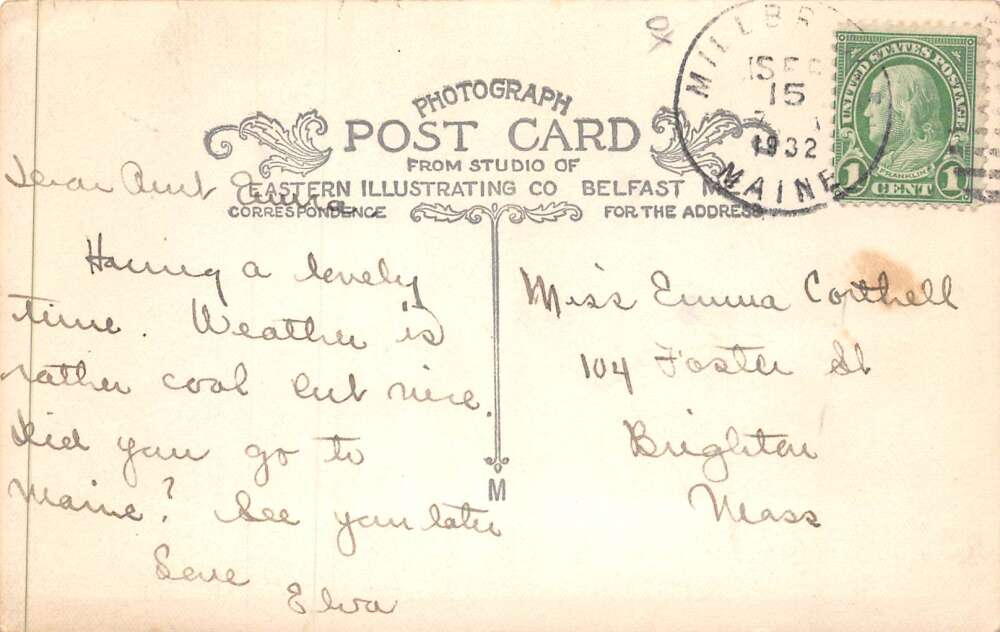 PHOTOGRAPH
POST CARD
FROM STUDIO OF
EASTERN ILLUSTRATING CO BELFAST ME.
CORRESPONDENCE
FOR THE ADDRESS
M
MILLBR
SEP
15
1932
MAINE
UNITED STATES POSTAGE
FRANKLIN
1 CENT 1
Dear Aunt Emma,
Having a lovely
time. Weather is
rather cool but nice.
Did you go to
Maine? See you later
Love
Elva
Miss Emma Corthell
104 Foster St
Brighton
Mass